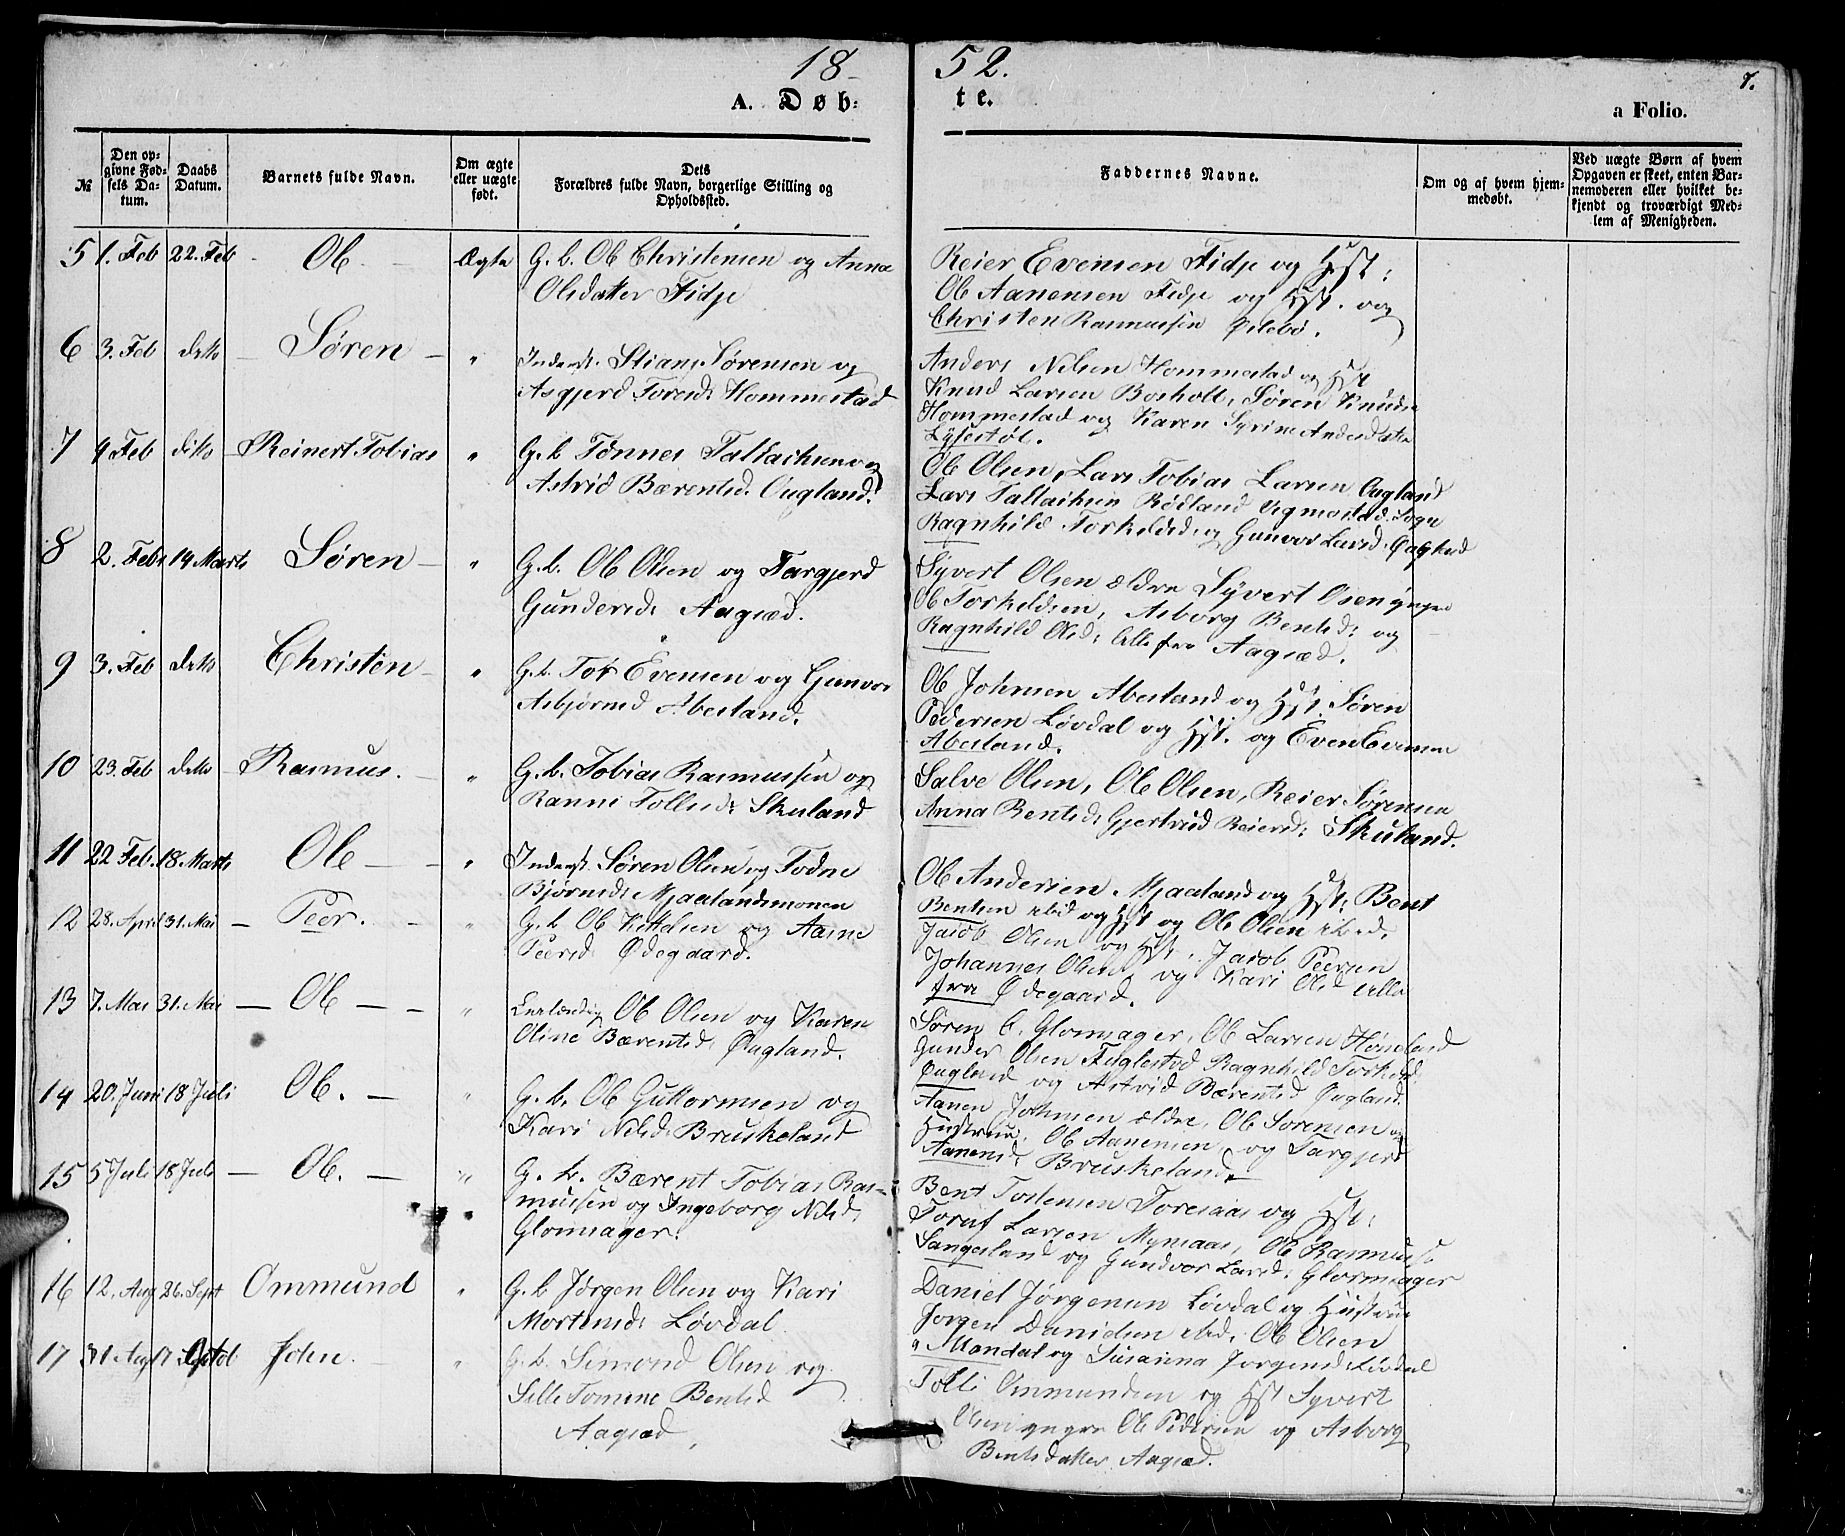 18 52.
7.
A. Døb: te.
a Folio.
№
Den op-
givne Fød-
sels Da-
tum.
Daabs
Datum.
Barnets fulde Navn.
Om ægte
eller uægte
født.
Dets
Forældres fulde Navn, borgerlige Stilling og
Opholdssted.
Faddernes Navne.
Om og af hvem hjem-
medøbt.
Ved uægte Børn af hvem
Opgaven er skeet, enten Bar-
nemoderen eller hvilket be-
kjendt og troværdigt Med-
lem af Menigheden.
5 1. Feb 22. Feb Ole Ægte G. b. Ole Christensen og Anna
Olsdatter Fidje
Reier Evensen Fidje og Hst:
Ole Aanensen Fidje og Hst. og
Christen Rasmussen Øilebø.
6 3. Feb dito Søren " Inderst. Stiang Sørensen og
Asgjerd Toresd: Hommestad
Anders Nilsen Hommestad og Hst
Knud Larsen Bosholt, Søren Knuds
Hommestad og Karen Syrine Andersdatter
Lysestøl.
7 4 Feb dito Reinert Tobias " G. b Tønnes Tallachsen og
Astrid Bærentsd. Øugland.
Ole Olsen, Lars Tobias Larsen Øugland
Lars Tallachsen Rødland Vigmostad Sogn
Ragnhild Torkelsd. og Gunvor Larsd. Øugland
8 2. Feb 14 Marts Søren " G. b. Ole Olsen og Targjerd
Gundersd: Aagsæd.
Syvert Olsen ældre Syvert Olsen yngre
Ole Torkeldsen, Asborg Bentsd: og
Ragnhild Olsd: alle fra Aagsæd.
9 3. Feb dito Christen " G. b. Tor Evensen og Gunvor
Asbjørnsd Abesland.
Ole Johnsen Abesland og Hst. Søren
Pedersen Løvdal og Hst. og Even Evensen
Abesland.
10 23. Feb dito Rasmus. " G. b. Tobias Rasmussen og
Ranni Tollisd: Skuland
Salve Olsen, Ole Olsen, Reier Sørensen
Anna Bentsd; Gjertrud Reiersd: Skuland.
11 22 Feb. 18. Marts Ole " Inderst. Søren Olsen og Todne
Bjørnsd: Mjaalandsmonen
Ole Andersen Mjaaland og Hst: Bent
Bentsen ibid og Hst og Ole Olsen ibid.
12 28. April 31. Mai Peer. " G. b Ole Kittelsen og Aasne
Peersd: Ødegaard.
Jacob Olsen og Hst. Jacob Peersen
Johannes Olsen og Kari Olsd alle
fra Ødegaard.
13 7. Mai 31. Mai Ole " Ole Olsen og Karen
Oline Bærentsd. Øugland.
Søren C. Glomsager, Ole Larsen Høneland
Gunder Olsen Fuglestad Ragnhild Torkelsd:
Øugland og Astrid Bærentsd Øugland.
14 20. Juni 18 Juli Ole. " G. b. Ole Guttormsen og
Kari Nilsd: Bruskeland
Aanen Johnsen ældre, Ole Sørensen og
Hustrue, Ole Aanensen og Targjerd
Aanensd: Bruskeland.
15 5 Juli 18 Juli Ole. " G. b. Bærent Tobias Ras-
mussen og Ingeborg Nilsd:
Glomsager.
Bent Tostensen Foresaas og Hst:
Toruf Larsen Mynsaas, Ole Rasmuss.
Sangesland og Gundvor Larsd: Glomsager
16 12. Aug 26. Sept Ommund " G. b Jørgen Olsen og Kari
Mortensd: Løvdal
Daniel Jørgensen Løvdal og Hustrue
Jørgen Danielsen ibid. Ole Olsen
Mandal og Susanna Jørgensd: Løvdal
17 31 Aug 17 Octob John " G. b. Simond Olsen og
Sille Tomine Bentsd
Aagsæd.
Tolli Ommundsen og Hst Syvert
Olsen yngre Ole Pedersen og Asborg
Bentsdatter Aagsæd.